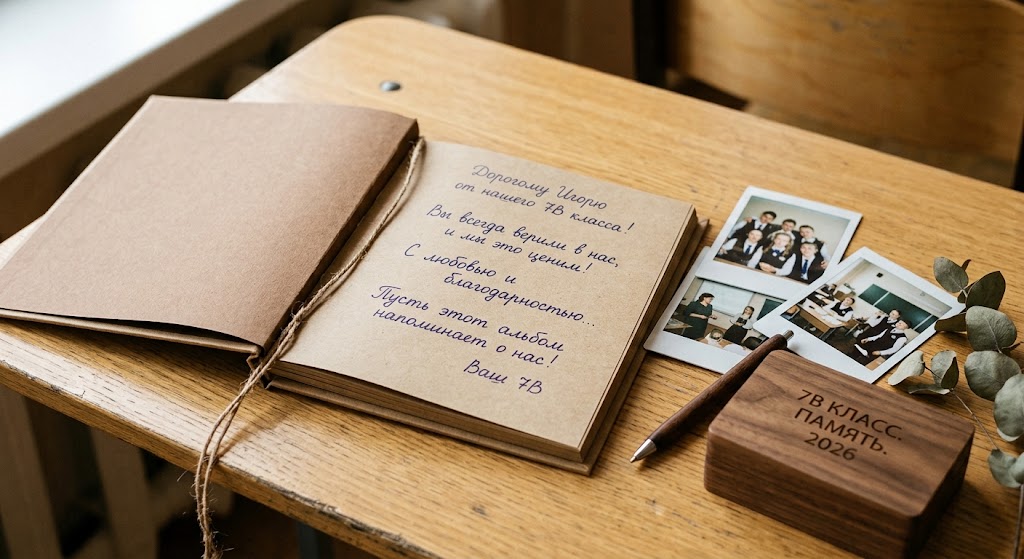 Дорогому Игорю
от нашего 7В класса!
Вы всегда верили в нас,
и мы это ценим!
С любовью и
благодарностью...
Пусть этот альбом
напоминает о нас!
Ваш 7В
7В КЛАСС.
ПАМЯТЬ.
2026